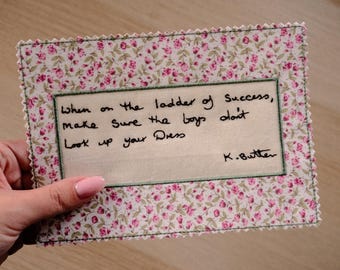 When on the ladder of success,
Make sure the boys don't
Look up your Dress
K. Butten